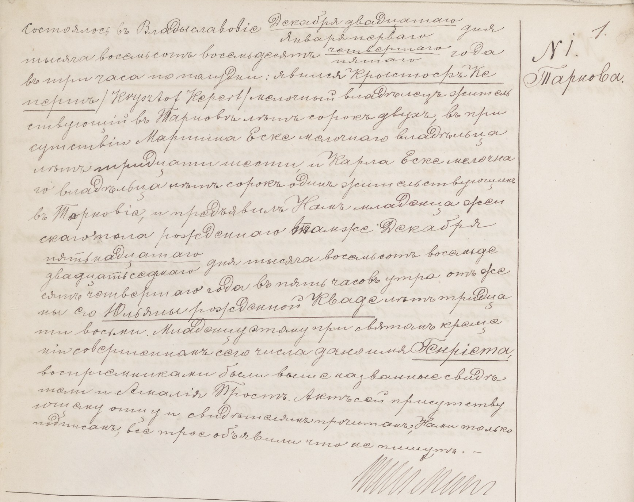 Состоялось въ Владыславовіе Декабря двадцатаго
Января перваго дня
тысяча восемьсотъ восемьдесятъ четвертаго
пятаго года
въ три часа по полудни; явился Кристофъ Ке
пертъ /Krysztof Kepert/ мелочный владѣлецъ житель
ствующій въ Тарновѣ лѣтъ сорокъ двухъ, въ при
сутствіи Мартина Еске мелочнаго владѣльца
лѣтъ тридцати шести и Карла Еске мелочна
го владѣльца лѣтъ сорокъ одинъ жительствующихъ
въ Тарновіѣ, и предъявилъ Намъ младенца жен
скаго пола рожденнаго тамже Декабря
пятьнадцатаго
двадцать седмаго дня тысяча восемьсотъ восемьде
сятъ четвертаго года въ пять часовъ утра отъ же
ны его Юльяны рожденной Кваде лѣтъ тридца
ти восьми. Младенцу этому при святомъ креще
ніи совершенномъ сего числа дано имя Генріета,
воспріемниками были выше названные свидѣ
тели и Амалія Простъ. Актъ сей присутству
ющему отцу и свидѣтелямъ прочитанъ, Нами только
подписанъ, все трое объявили что не пишутъ. —
1.
N 1.
Тарнова.